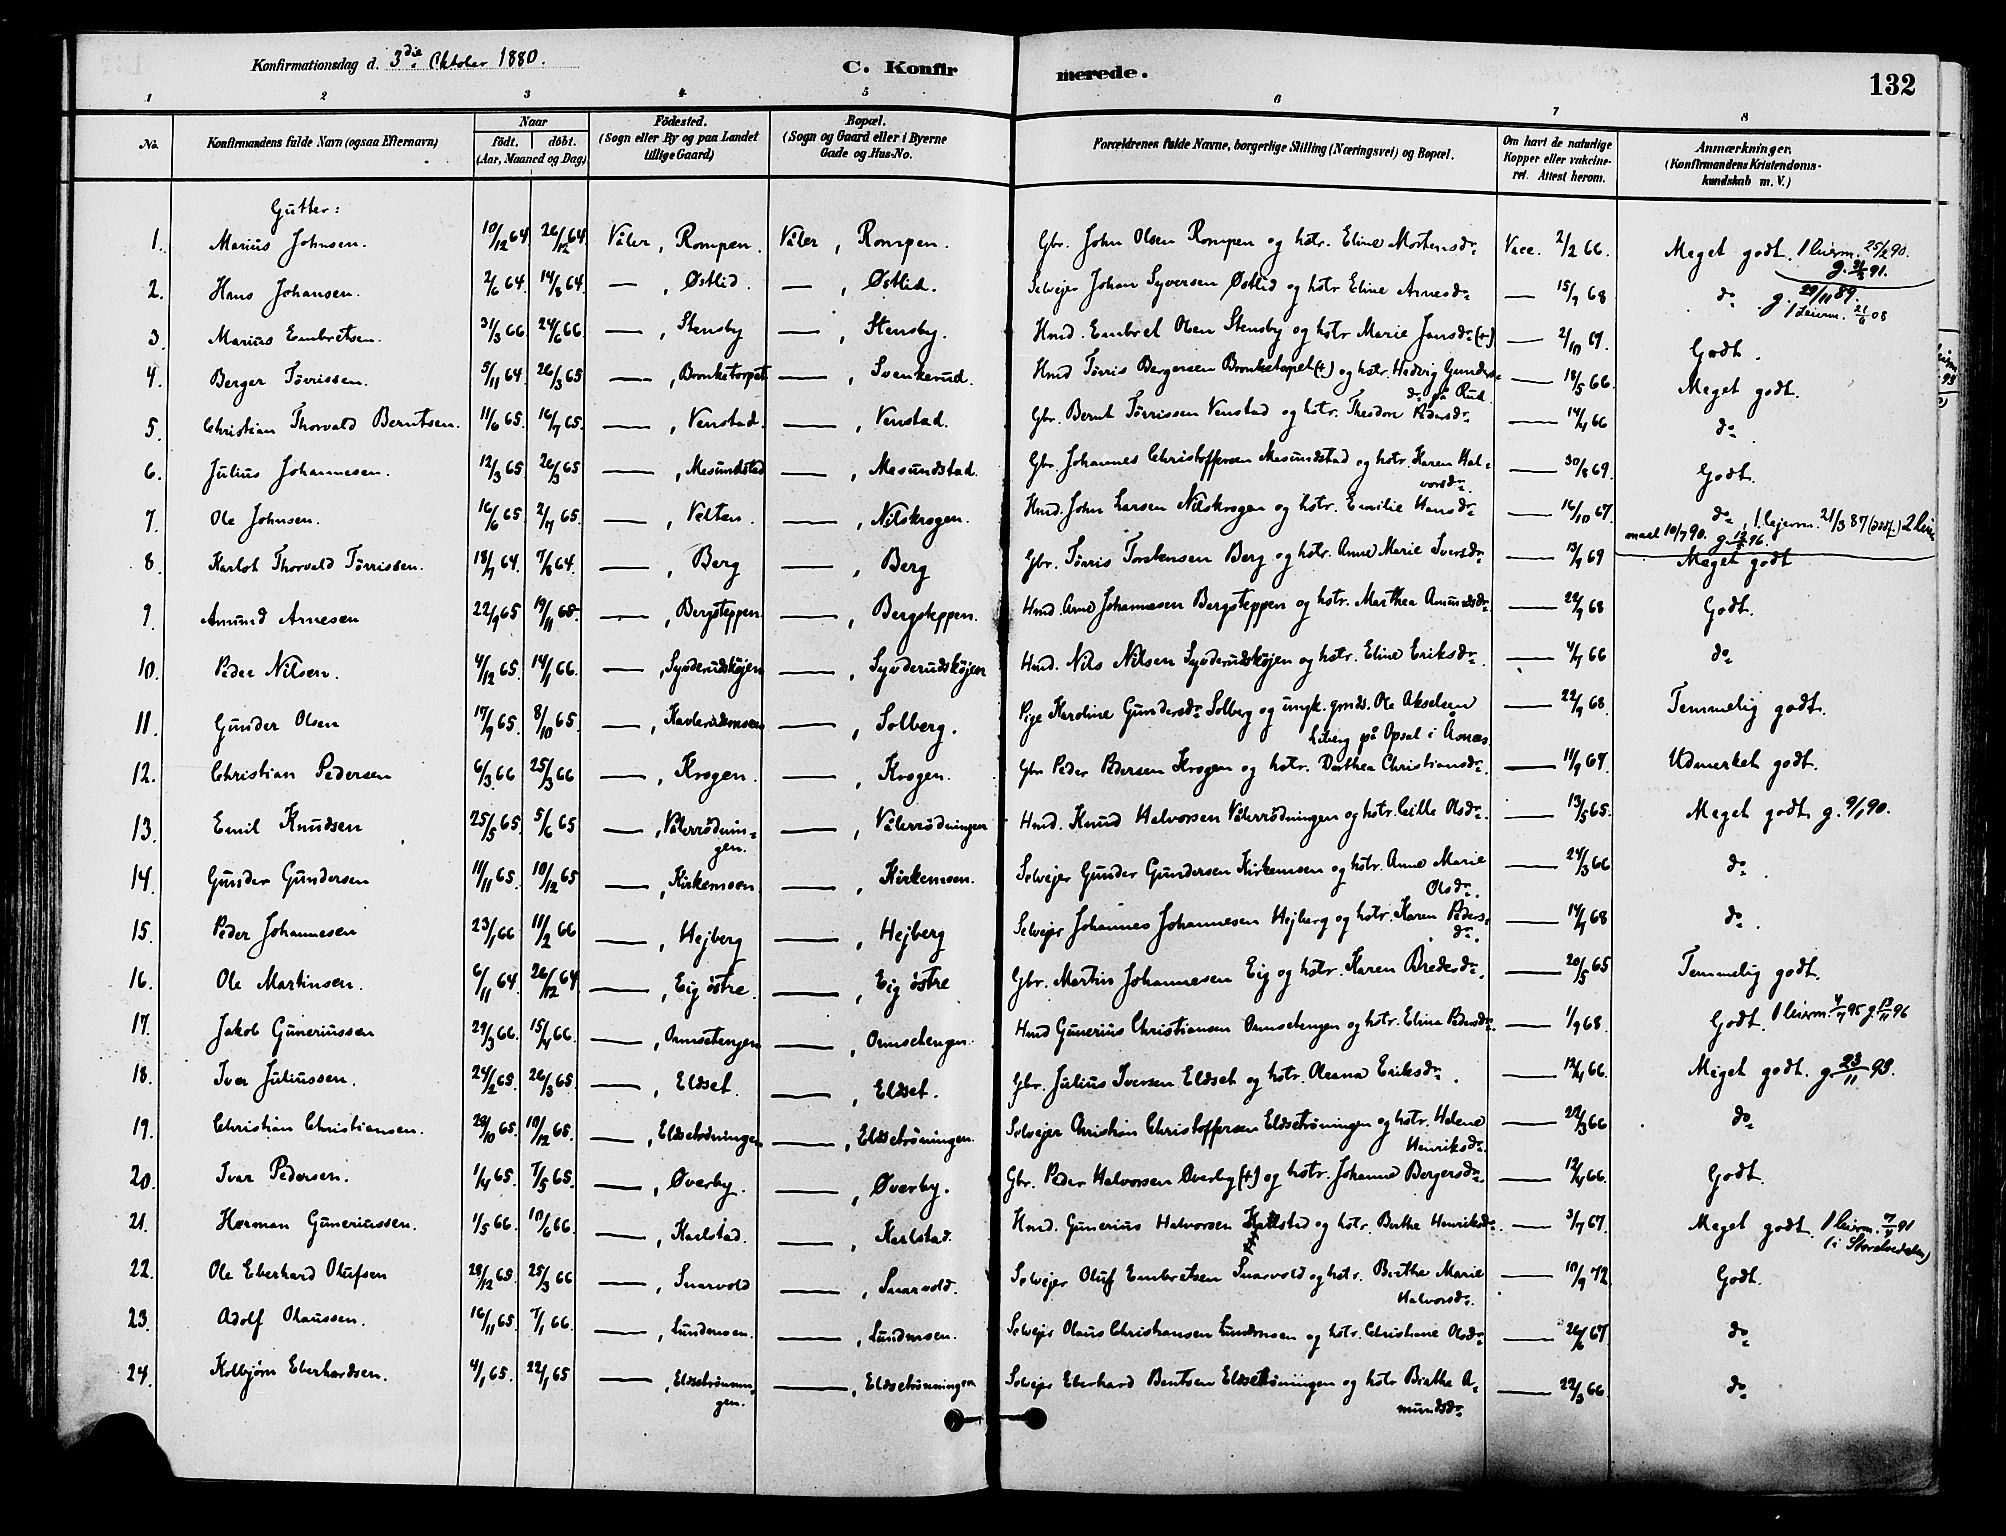 Konfirmationsdag d. 3die Oktober 1880.
C. Konfirmerede.
132
1 2 3 4 5 6 7 8
No.
Konfirmandens fulde Navn (ogsaa Efternavn)
Naar
födt. döbt.
(Aar, Maaned og Dag)
Födested.
(Sogn eller By og paa Landet
tillige Gaard)
Bopæl.
(Sogn og Gaard eller i Byerne
Gade og Hus-No.
Forældrenes fulde Navne, borgerlige Stilling (Næringsvei) og Bopæl.
Om havt de naturlige
Kopper eller vakcine-
ret. Attest herom.
Anmærkninger.
(Konfirmandens Kristendoms-
kundskab m. V.)
Gutter:
1. Marius Johnsen. 10/12 64 26/12 64 Våler, Rompen. Våler, Rompen. Gbr. John Olsen Rompen og hstr. Eline Mortensdr. Vacc. 2/2 66. Meget godt. 1 leirm. 25/2 90.
g. 21/3 91.
2. Hans Johansen. 2/6 64. 14/8 64. — , Østlid. — , Østlid. Selvejer Johan Syversen Østlid og hstr. Eline Arnesdr. — 15/9 68 do g. 29/11 89.
1 Leirm. 21/6 08
3. Marius Embretsen. 31/3 66. 24/6 66. — , Stensby — , Stensby. Hmd. Embret Olsen Stensby og hstr Marie Jansdr (+) — 2/10 67. Godt.
4. Berger Tørrissen. 5/11 64. 26/3 65 — , Bronkstorpet — , Svenkerud. Hmd Tørris Bergersen Bronkstorpet (+) og hstr. Hedvig Gunders-
dr på Rud. — 18/5 66. Meget godt.
5. Christian Thorvald Berntsen. 11/6 65. 16/7 65. — , Venstad. — , Venstad. Gbr. Bernt Tørrissen Venstad og hstr. Theodore Pedersdr. — 14/4 66 do.
6. Julius Johannesen. 12/3 65. 26/3 65 — , Mesundstad — , Mesundstad. Gbr. Johannes Christoffersen Mesundstad og hstr. Karen Hal-
vorsdr. — 30/8 69. Godt.
7. Ole Johnsen. 16/6 65. 2/7 65. — , Velten. — , Nilskrogen. Hmd. John Larsen Nilskrogen og hstr. Emilie Hansdr — 16/10 67. do, 1. lejerm. 21/3 87 (dødf.) 2 leir
maal 10/7 90. g. 12/4 96.
8. Karlot Thorvald Tørrissen. 18/7 64. 7/8 64. — , Berg — , Berg Gbr. Tørris Torstensen Berg og hstr. Anne Marie Iversdr — 13/9 69 Meget godt
9. Amund Arnesen 22/9 65 19/11 65. — , Bergsteppen — , Bergsteppen. Hmd. Arne Johannesen Bergsteppen og hstr. Marthea Amundsdr. — 22/9 68 Godt.
10. Peder Nilsen. 4/12 65. 14/1 66. — , Synderudskøjen — , Synderudskøjen Hmd. Nils Nilsen Synderudskøjen og hstr. Eline Eriksdr. — 4/7 66 do
11. Gunder Olsen 17/9 65. 8/10 65. — — , Solberg. Pige Karoline Gundersdr Solberg og ungk. gmds. Ole Akselsen
Liberg på Opsal i Åsnæs. — 22/9 68. Temmelig godt.
12. Christian Pedersen 6/3 66 25/3 66 — , Krogen. — , Krogen. Gbr Peder Pedersen Krogen og hstr. Dorthea Christiansdr. — 11/9 67. Udmerket godt.
13. Emil Knudsen 25/5 65. 5/6 65 — , Vålerrødnin-
gen. — , Vålerrødningen Hmd. Knud Halvorsen Vålerrødningen og hstr. Cille Olsdr. — 13/5 65. Meget godt g. 9/1 90.
14. Gunder Gundersen 11/11 65. 10/12 65 — , Kirkemoen — , Kirkemoen. Selvejer Gunder Gundersen Kirkemoen og hstr. Anne Marie
Olsdr. — 24/3 66 do.
15. Peder Johannesen 23/1 66 11/2 66 — , Hejberg — , Hejberg Selvejer Johannes Johannesen Hejberg og hstr. Karen Peders-
dr. — 14/9 68 do.
16. Ole Martinsen. 6/11 64. 26/12 64. — , Eig østre. — , Eig østre Gbr. Martin Johannesen Eig og hstr. Karen Bredesdr. — 20/5 65 Temmelig godt.
17. Jakob Guneriussen 29/3 66. 15/4 66. — , Ormsetengen — , Ormsetengen. Hmd Gunerius Christiansen Ormsetengen og hstr. Elina Pedersdr. — 1/9 68. Godt. 1 leirm 4/7 95 g. 12/11 96
18. Iver Juliussen. 24/2 65. 26/3 65. — , Eldset. — , Eldset. Gbr. Julius Iversen Eldset og hstr. Oleana Eriksdr. — 12/4 66. Meget godt. g. 23/11 93.
19. Christian Christiansen. 29/10 65. 10/12 65. — , Eldsetrødningen — , Eldsetrøningen. Selvejer Christian Christoffersen Eldsetrøningen og hstr. Helene
Henriksdr. — 22/3 66 do
20. Iver Pedersen. 1/4 65. 7/5 65. — , Øverby. — , Øverby. Gbr. Peder Halvorsen Øverby (+) og hstr. Johanne Bergersdr — 12/4 66. Godt.
21. Herman Guneriussen. 1/5 66. 10/6 66. — , Karlstad. — , Karlstad. Hmd. Gunerius Halvorsen Karlstad og hstr. Berthe Henriksdr. — 3/7 67. Meget godt. 1 leirm. 7/9 91
(i Storelvedalen)
22. Ole Eberhard Olufsen 28/12 65. 25/3 66 — , Snarvold — , Snarvold. Selvejer Oluf Embretsen Snarvold og hstr. Berthe Marie
Halvorsdr. — 10/9 72 Godt.
23. Adolf Olaussen. 16/11 65. 7/1 66. — , Lundmoen. — , Lundmoen. Selvejer Olaus Christiansen Lundmoen og hstr. Christiane Olsdr — 26/6 67 do
24. Kolbjørn Eberhardsen. 4/1 65. 22/1 65 — , Eldsetrønnin-
gen. — , Eldsetrønningen Selvejer Eberhard Bentsen Eldsetrøningen og hstr Birthe A-
mundsdr — 22/3 66. do